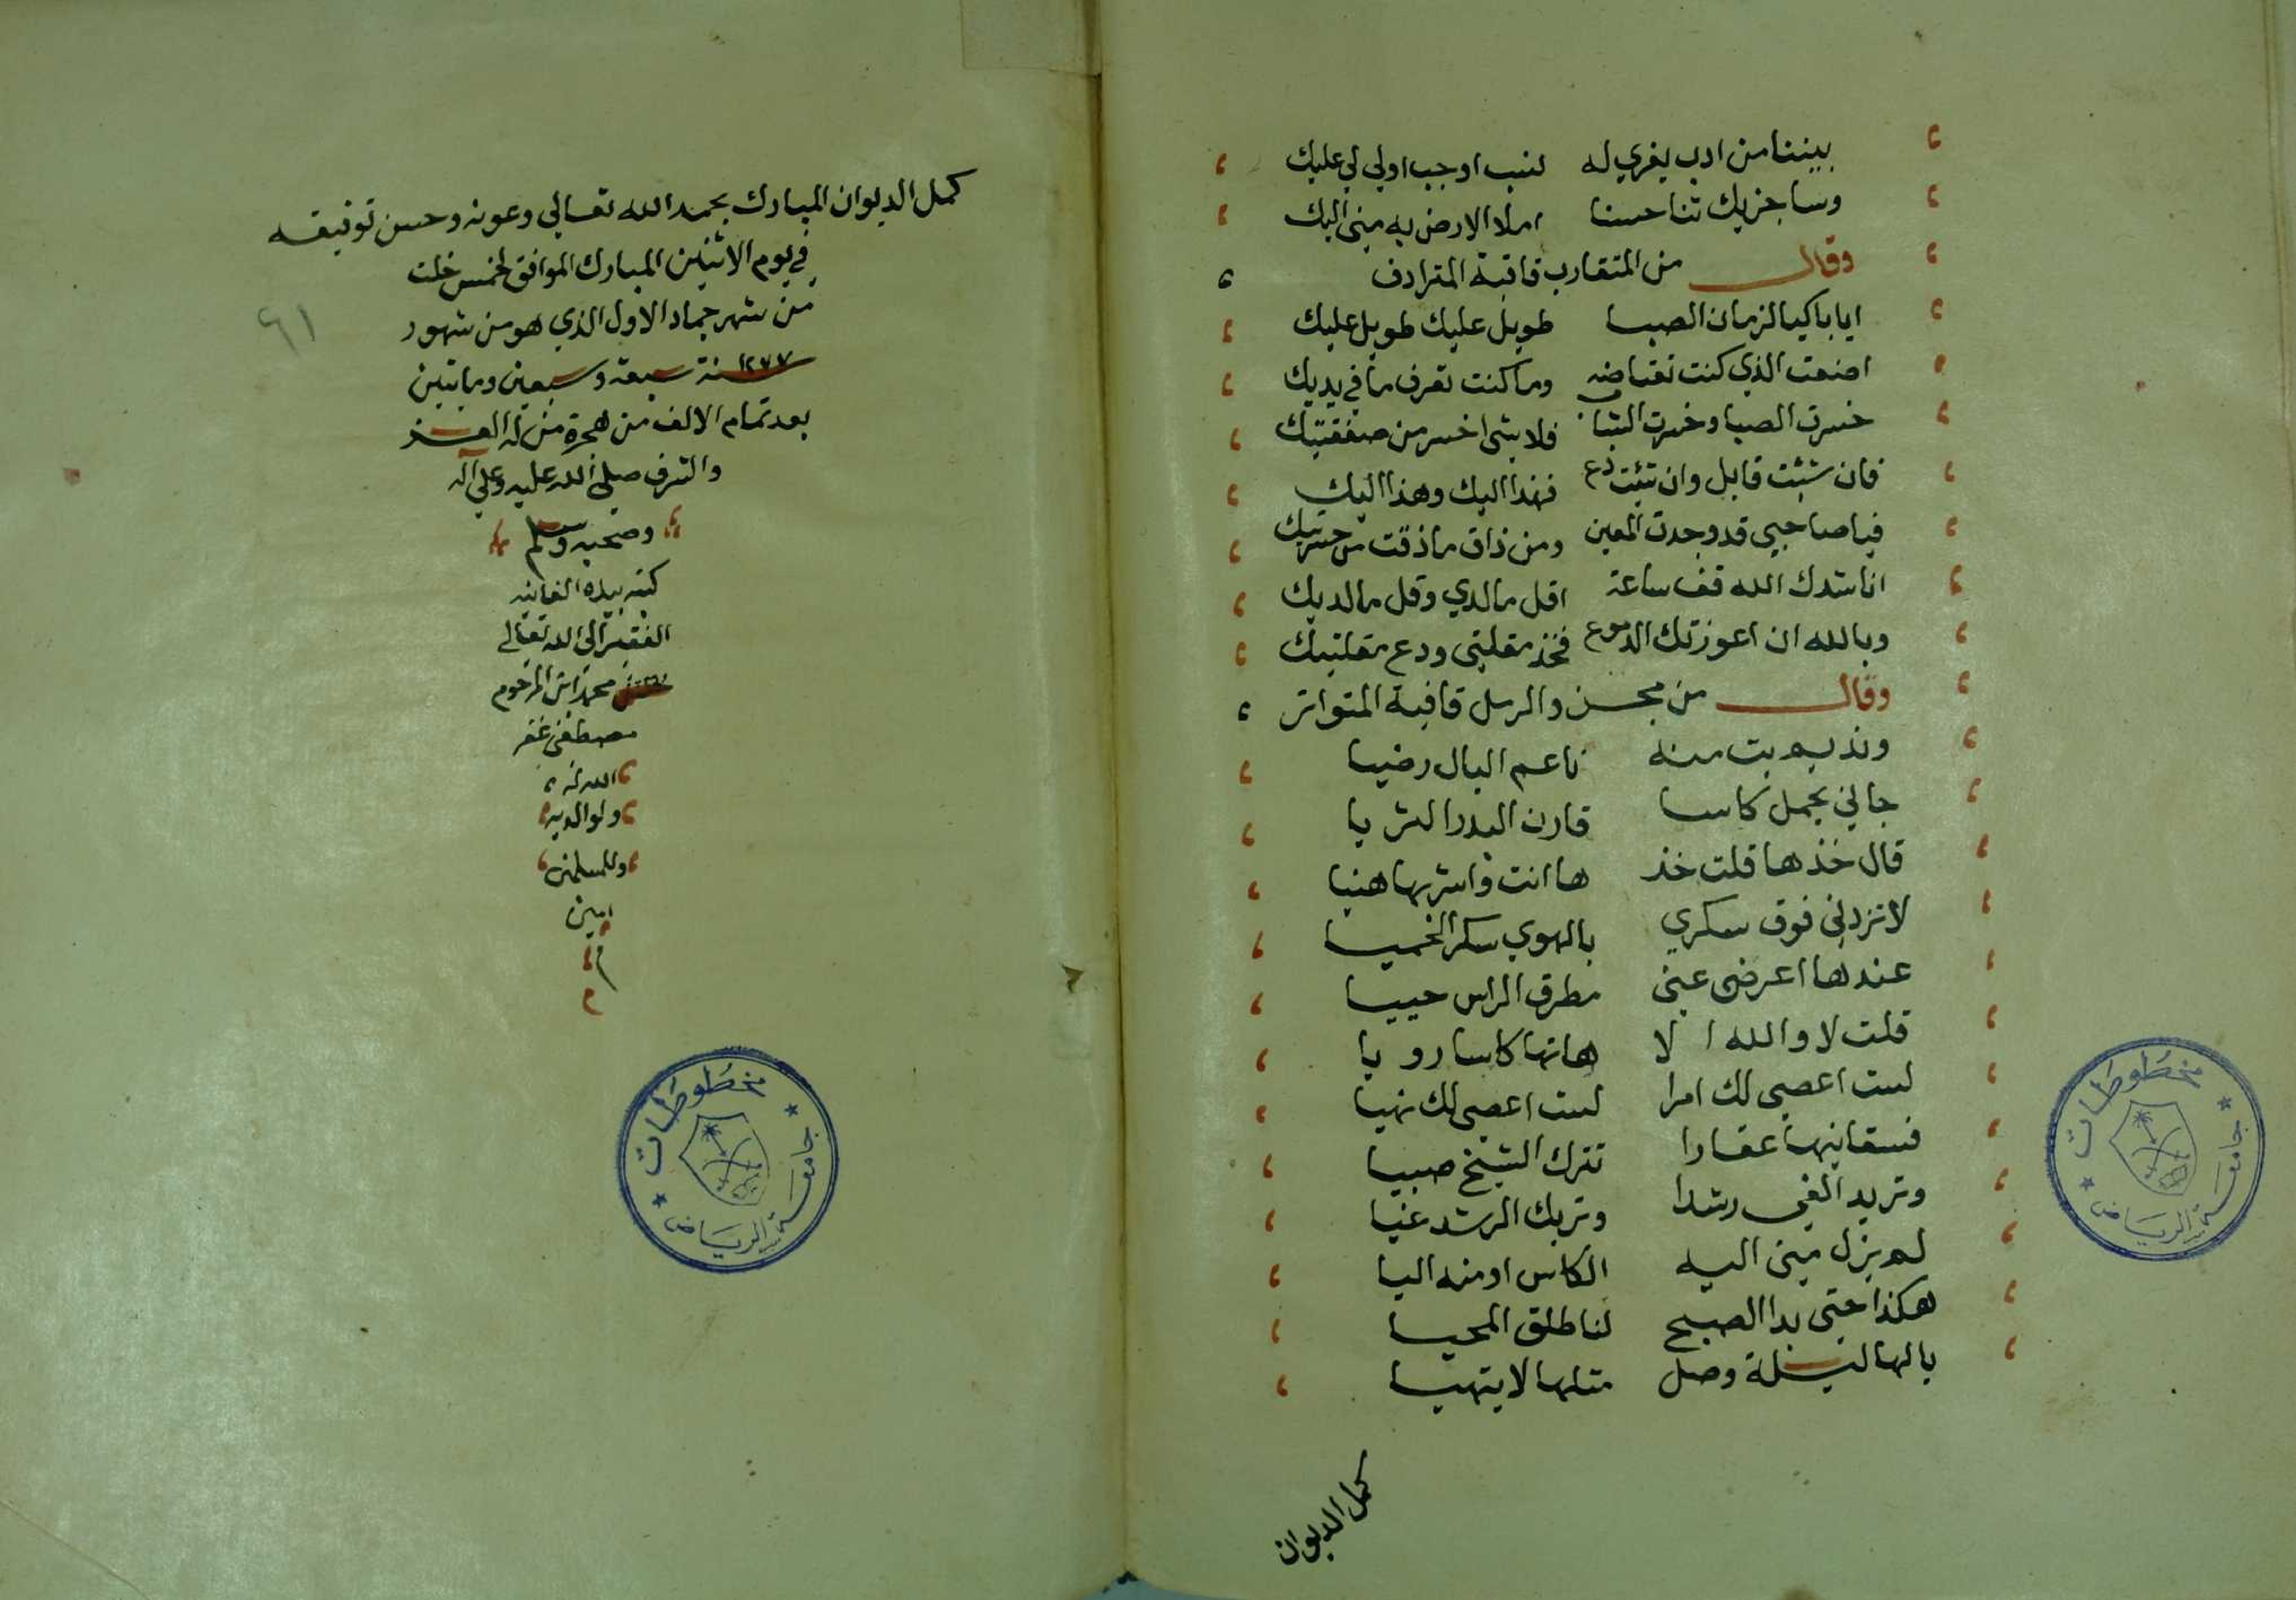 بيننا من ادب يغري له لنسب اوجب اولي لي عليك
وساجزيك ثنا حسنا املا الارض به مني اليك
وقال من المتقارب قافية المترادف
ايا باكيا لزمان الصبا طويل عليك طويل عليك
اضعت الذي كنت تعتاضه وما كنت تعرف ما في يديك
خسرت الصبا وخسرت الشباب فلا شي اخسر من صفقتيك
فان شئت قابل وان شئت دع فهذا اليك وهذا اليك
فيا صاحبي قد وجدت المعين ومن ذاق ما ذقت من حسرتيك
اناشدك الله قف ساعة اقل ما لدي وقل ما لديك
وبالله ان اعوزتك الدموع فخذ مقلتي ودع مقلتيك
وقال من مجزو الرمل قافية المتواتر
ونديم بت منه ناعم البال رضيا
جاني يحمل كاسا قارن البدر الثريا
قال خذها قلت خذ ها انت واشربها هنيا
لا تزدني فوق سكري بالهوي سكر الحميا
عندها اعرض عني مطرق الراس حييا
قلت لا والله الا هاتها كاسا رويا
لست اعصي لك امرا لست اعصي لك نهيا
فسقانيها عقارا تترك الشيخ صبيا
وتريد الغي رشدا وتريك الرشد غيا
لم يزل مني اليه الكاس او منه اليا
هكذا حتى بدا الصبح لنا طلق المحيا
يالها ليلة وصل مثلها لا يتهيا
كمل الديوان
كمل الديوان المبارك بحمد الله تعالي وعونه وحسن توفيقه
في يوم الاثنين المبارك الموافق لخمس خلت
من شهر جماد الاول الذي هو من شهور
سنة ١٢٧٧ سبعة وسبعين وماتين
بعد تمام الالف من هجرة من له العز
والشرف صلى الله عليه وعلي اله
وصحبه وسلم
كتبه بيده الفانيه
الفقير الى الله تعالى
محمد ابن المرحوم
مصطفى غفر
الله له
ولوالديه
وللمسلمين
امين
م
٦١
مخطوطات
جامعة الرياض
مخطوطات
جامعة الرياض